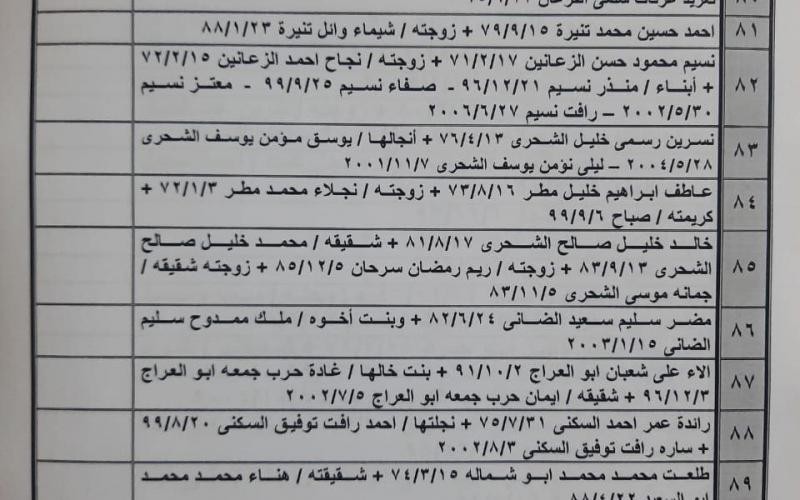 ٨١ احمد حسين محمد تنيرة ٧٩/٩/١٥ + زوجته / شيماء وائل تنيرة ٨٨/١/٢٣
نسيم محمود حسن الزعانين ٧١/٢/١٧ + زوجته / نجاح احمد الزعانين ٧٢/٢/١٥
٨٢ + أبناء / منذر نسيم ٩٦/١٢/٢١ - صفاء نسيم ٩٩/٩/٢٥ - معتز نسيم
٢٠٠٢/٥/٣٠ – رافت نسيم ٢٠٠٦/٦/٢٧
٨٣ نسرين رسمى خليل الشحرى ٧٦/٤/١٣ + أنجالها / يوسق مؤمن يوسف الشحرى
٢٠٠٤/٥/٢٨ – ليلى نؤمن يوسف الشحرى ٢٠٠١/١١/٧
٨٤ عاطف ابراهيم خليل مطر ٧٣/٨/١٦ + زوجته / نجلاء محمد مطر ٧٢/١/٣ +
كريمته / صباح ٩٩/٩/٦
خالد خليل صالح الشحرى ٨١/٨/١٧ + شقيقه / محمد خليل صالح
٨٥ الشحرى ٨٣/٩/١٣ + زوجته / ريم رمضان سرحان ٨٥/١٢/٥ + زوجته شقيقه /
جمانه موسى الشحرى ٨٣/١١/٥
٨٦ مضر سليم سعيد الضانى ٨٢/٦/٢٤ + وبنت أخوه / ملك ممدوح سليم
الضانى ٢٠٠٣/١/١٥
٨٧ الاء على شعبان ابو العراج ٩١/١٠/٢ + بنت خالها / غادة حرب جمعه ابو العراج
٩٦/١٢/٣ + شقيقه / ايمان حرب جمعه ابو العراج ٢٠٠٢/٧/٥
٨٨ رائدة عمر احمد السكنى ٧٥/٧/٣١ + نجلتها / احمد رافت توفيق السكنى ٩٩/٨/٢٠
+ ساره رافت توفيق السكنى ٢٠٠٢/٨/٣
٨٩ طلعت محمد محمد ابو شماله ٧٤/٣/١٥ + شقيقته / هناء محمد محمد